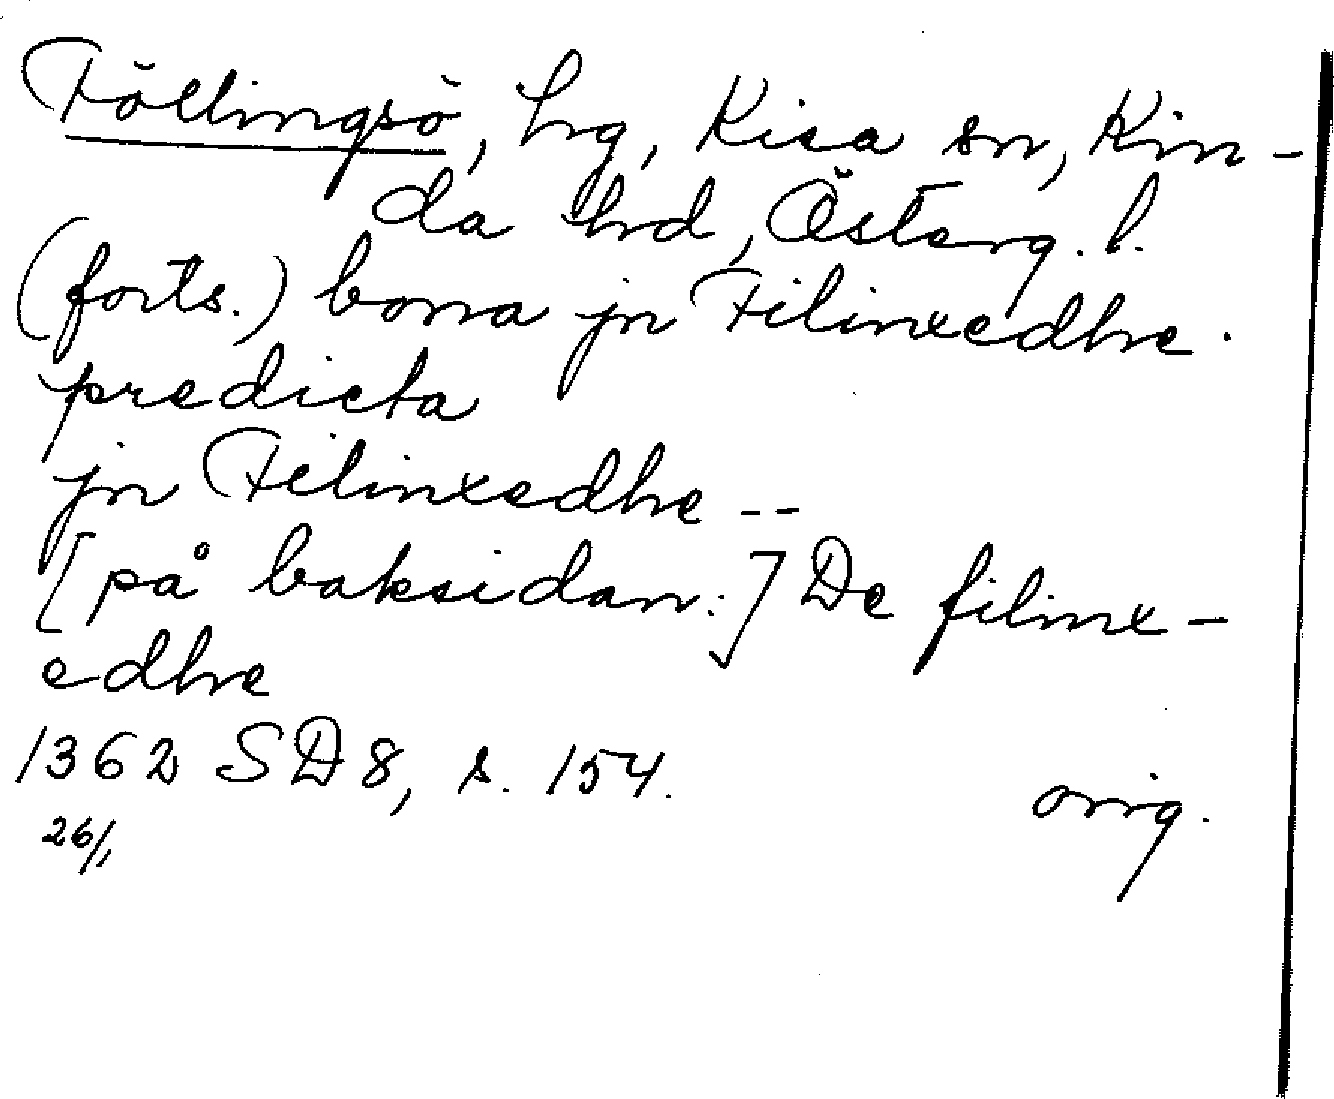 Föllingsö, hg, Kisa sn, Kin-
da hd, Österg. l.
(forts.) bona jn Filinxedhe.
predicta
jn Filinxedhe --
[på baksidan:] De filinx-
edhe
1362 SD 8, s. 154.
orig.
26/1